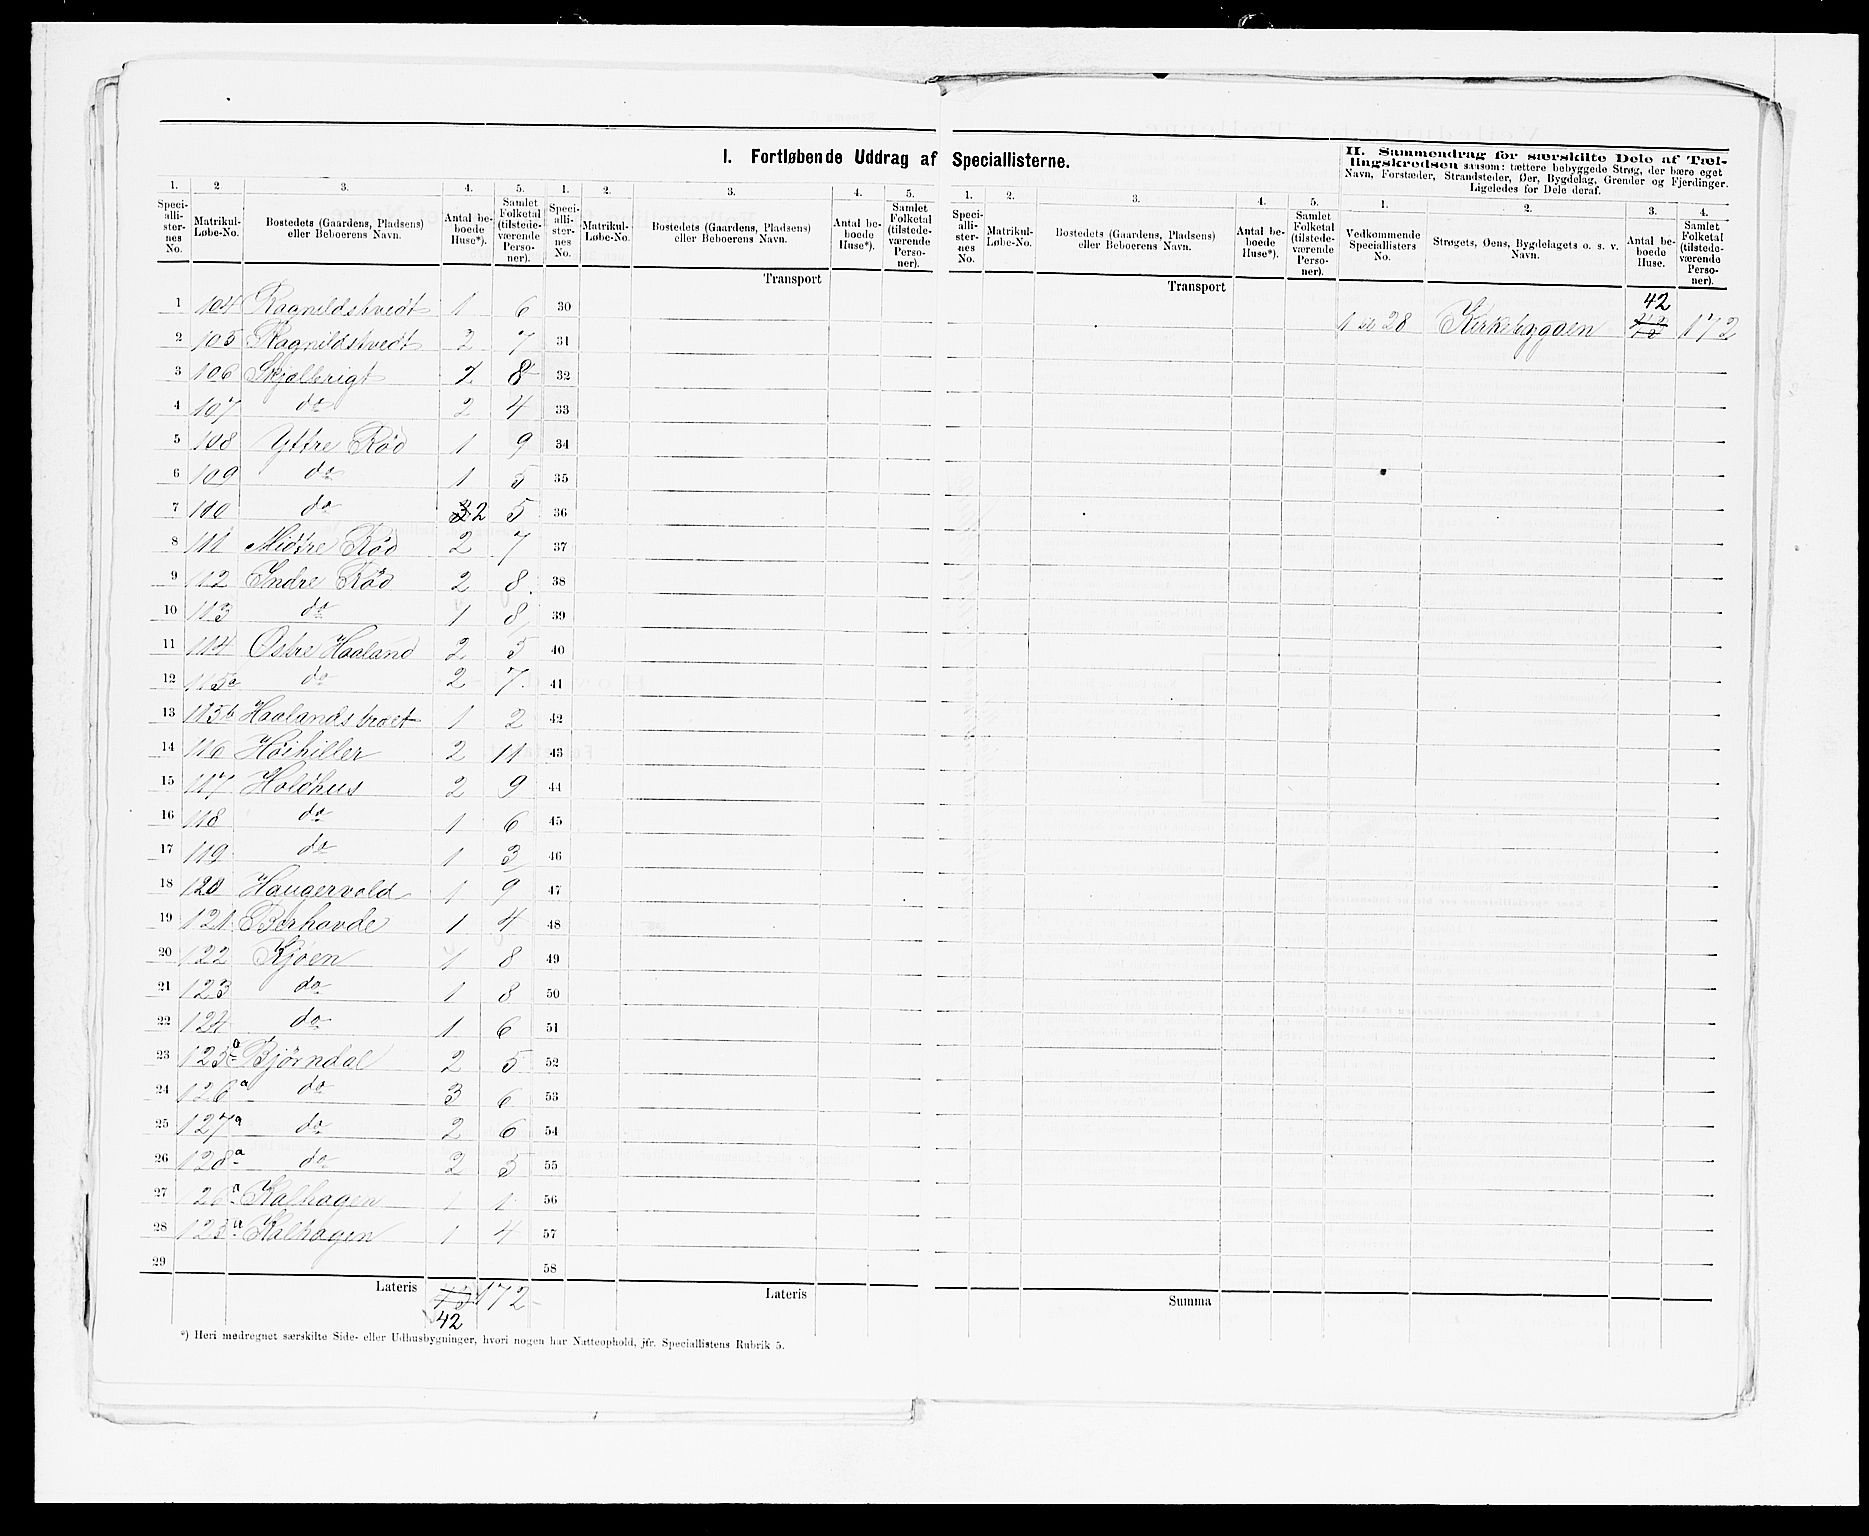 I. Fortløbende Uddrag af Speciallisterne.
II. Sammendrag for særskilte Dele af Tællingskredsen saasom: tættere bebyggede Strøg, der bære eget
Navn, Forstæder, Strandsteder, Øer, Bygdelag, Grender og Fjerdinger.
Ligeledes for Dele deraf.
1. 2 3. 4. 5. 1. 2. 3. 4. 5. 1. 2. 3. 4. 5. 1. 2. 3. 4.
Speciallisternes No. Matrikul-Løbe-No. Bostedets (Gaardens, Pladsens) eller Beboerens Navn. Antal beboede Huse*). Samlet Folketal (tilstedeværende Personer).
Speciallisternes No. Matrikul-Løbe-No. Bostedets (Gaardens, Pladsens) eller Beboerens Navn. Antal beboede Huse*). Samlet Folketal (tilstedeværende Personer).
Speciallisternes No. Matrikul-Løbe-No. Bostedets (Gaardens, Pladsens) eller Beboerens Navn. Antal beboede Huse*). Samlet Folketal (tilstedeværende Personer).
Vedkommende Speciallisters No. Strøgets, Øens, Bygdelagets o. s. v. Navn. Antal beboede Huse. Samlet Folketal (tilstedeværende Personer).
Transport Transport
1 104 Ragnildstvedt 1 6 30
42
1 til 28 Kirkebygden 172
2 105 Ragnildstvedt 2 7 31
3 106 Skjolbrigt 2 8 32
4 107 do 2 4 33
5 108 Yttre Rød 1 9 34
6 109 do 1 5 35
7 110 do 3 2 5 36
8 111 Midtre Rød 2 7 37
9 112 Indre Rød 2 8 38
10 113 do 1 8 39
11 114 Østre Haaland 2 5 40
12 115a do 2 7 41
13 115b Haalandsbraet 1 2 42
14 116 Høihiller 2 11 43
15 117 Holdhus 2 9 44
16 118 do 1 6 45
17 119 do 1 3 46
18 120 Haugervold 1 9 47
19 121 Berhovde 1 4 48
20 122 Kjøen 1 8 49
21 123 do 1 8 50
22 124 do 1 6 51
23 125a Bjørndal 2 5 52
24 126a do 3 6 53
25 127a do 2 6 54
26 128a do 2 5 55
27 126a Kalhagen 1 1 56
28 125a Kalhagen 1 4 57
29 58
Lateris 172 Lateris Summa
42
*) Heri medregnet særskilte Side- eller Udhusbygninger, hvori nogen har Natteophold, jfr. Speciallistens Rubrik 5.